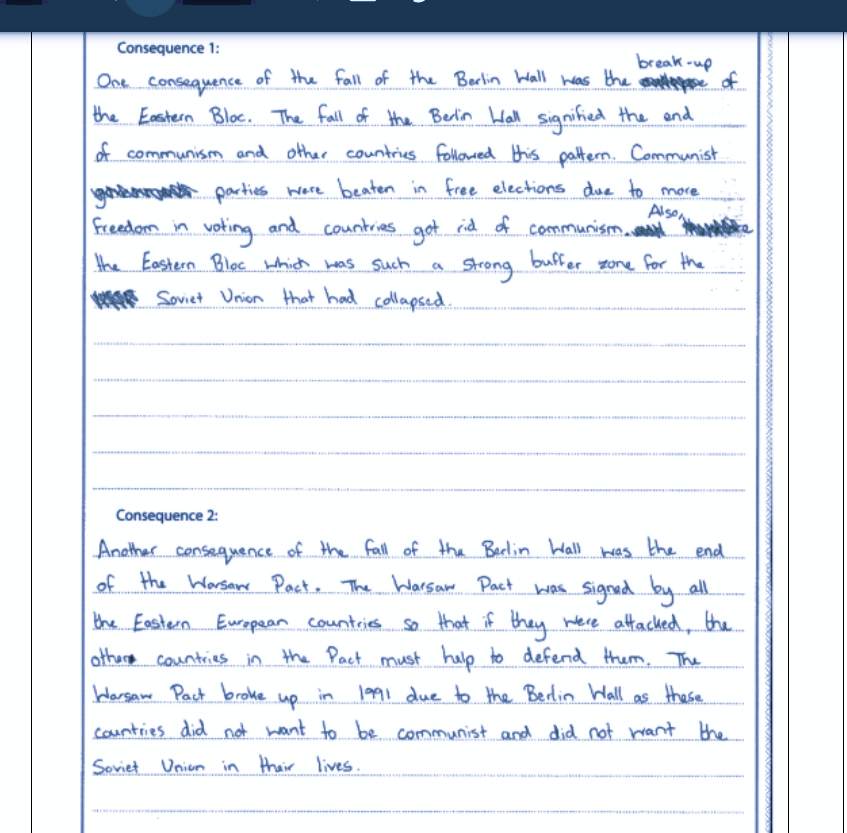 Consequence 1:
break-up
One consequence of the fall of the Berlin Wall was the of
the Eastern Bloc. The fall of the Berlin Wall signified the end
of communism and other countries followed this pattern. Communist
parties were beaten in free elections due to more
Also,
freedom in voting and countries got rid of communism.
the Eastern Bloc which was such a strong buffer zone for the
Soviet Union that had collapsed.
Consequence 2:
Another consequence of the fall of the Berlin Wall was the end
of the Warsaw Pact. The Warsaw Pact was signed by all
the Eastern European countries so that if they were attacked, the
other countries in the Pact must help to defend them. The
Warsaw Pact broke up in 1991 due to the Berlin Wall as these
countries did not want to be communist and did not want the
Soviet Union in their lives.